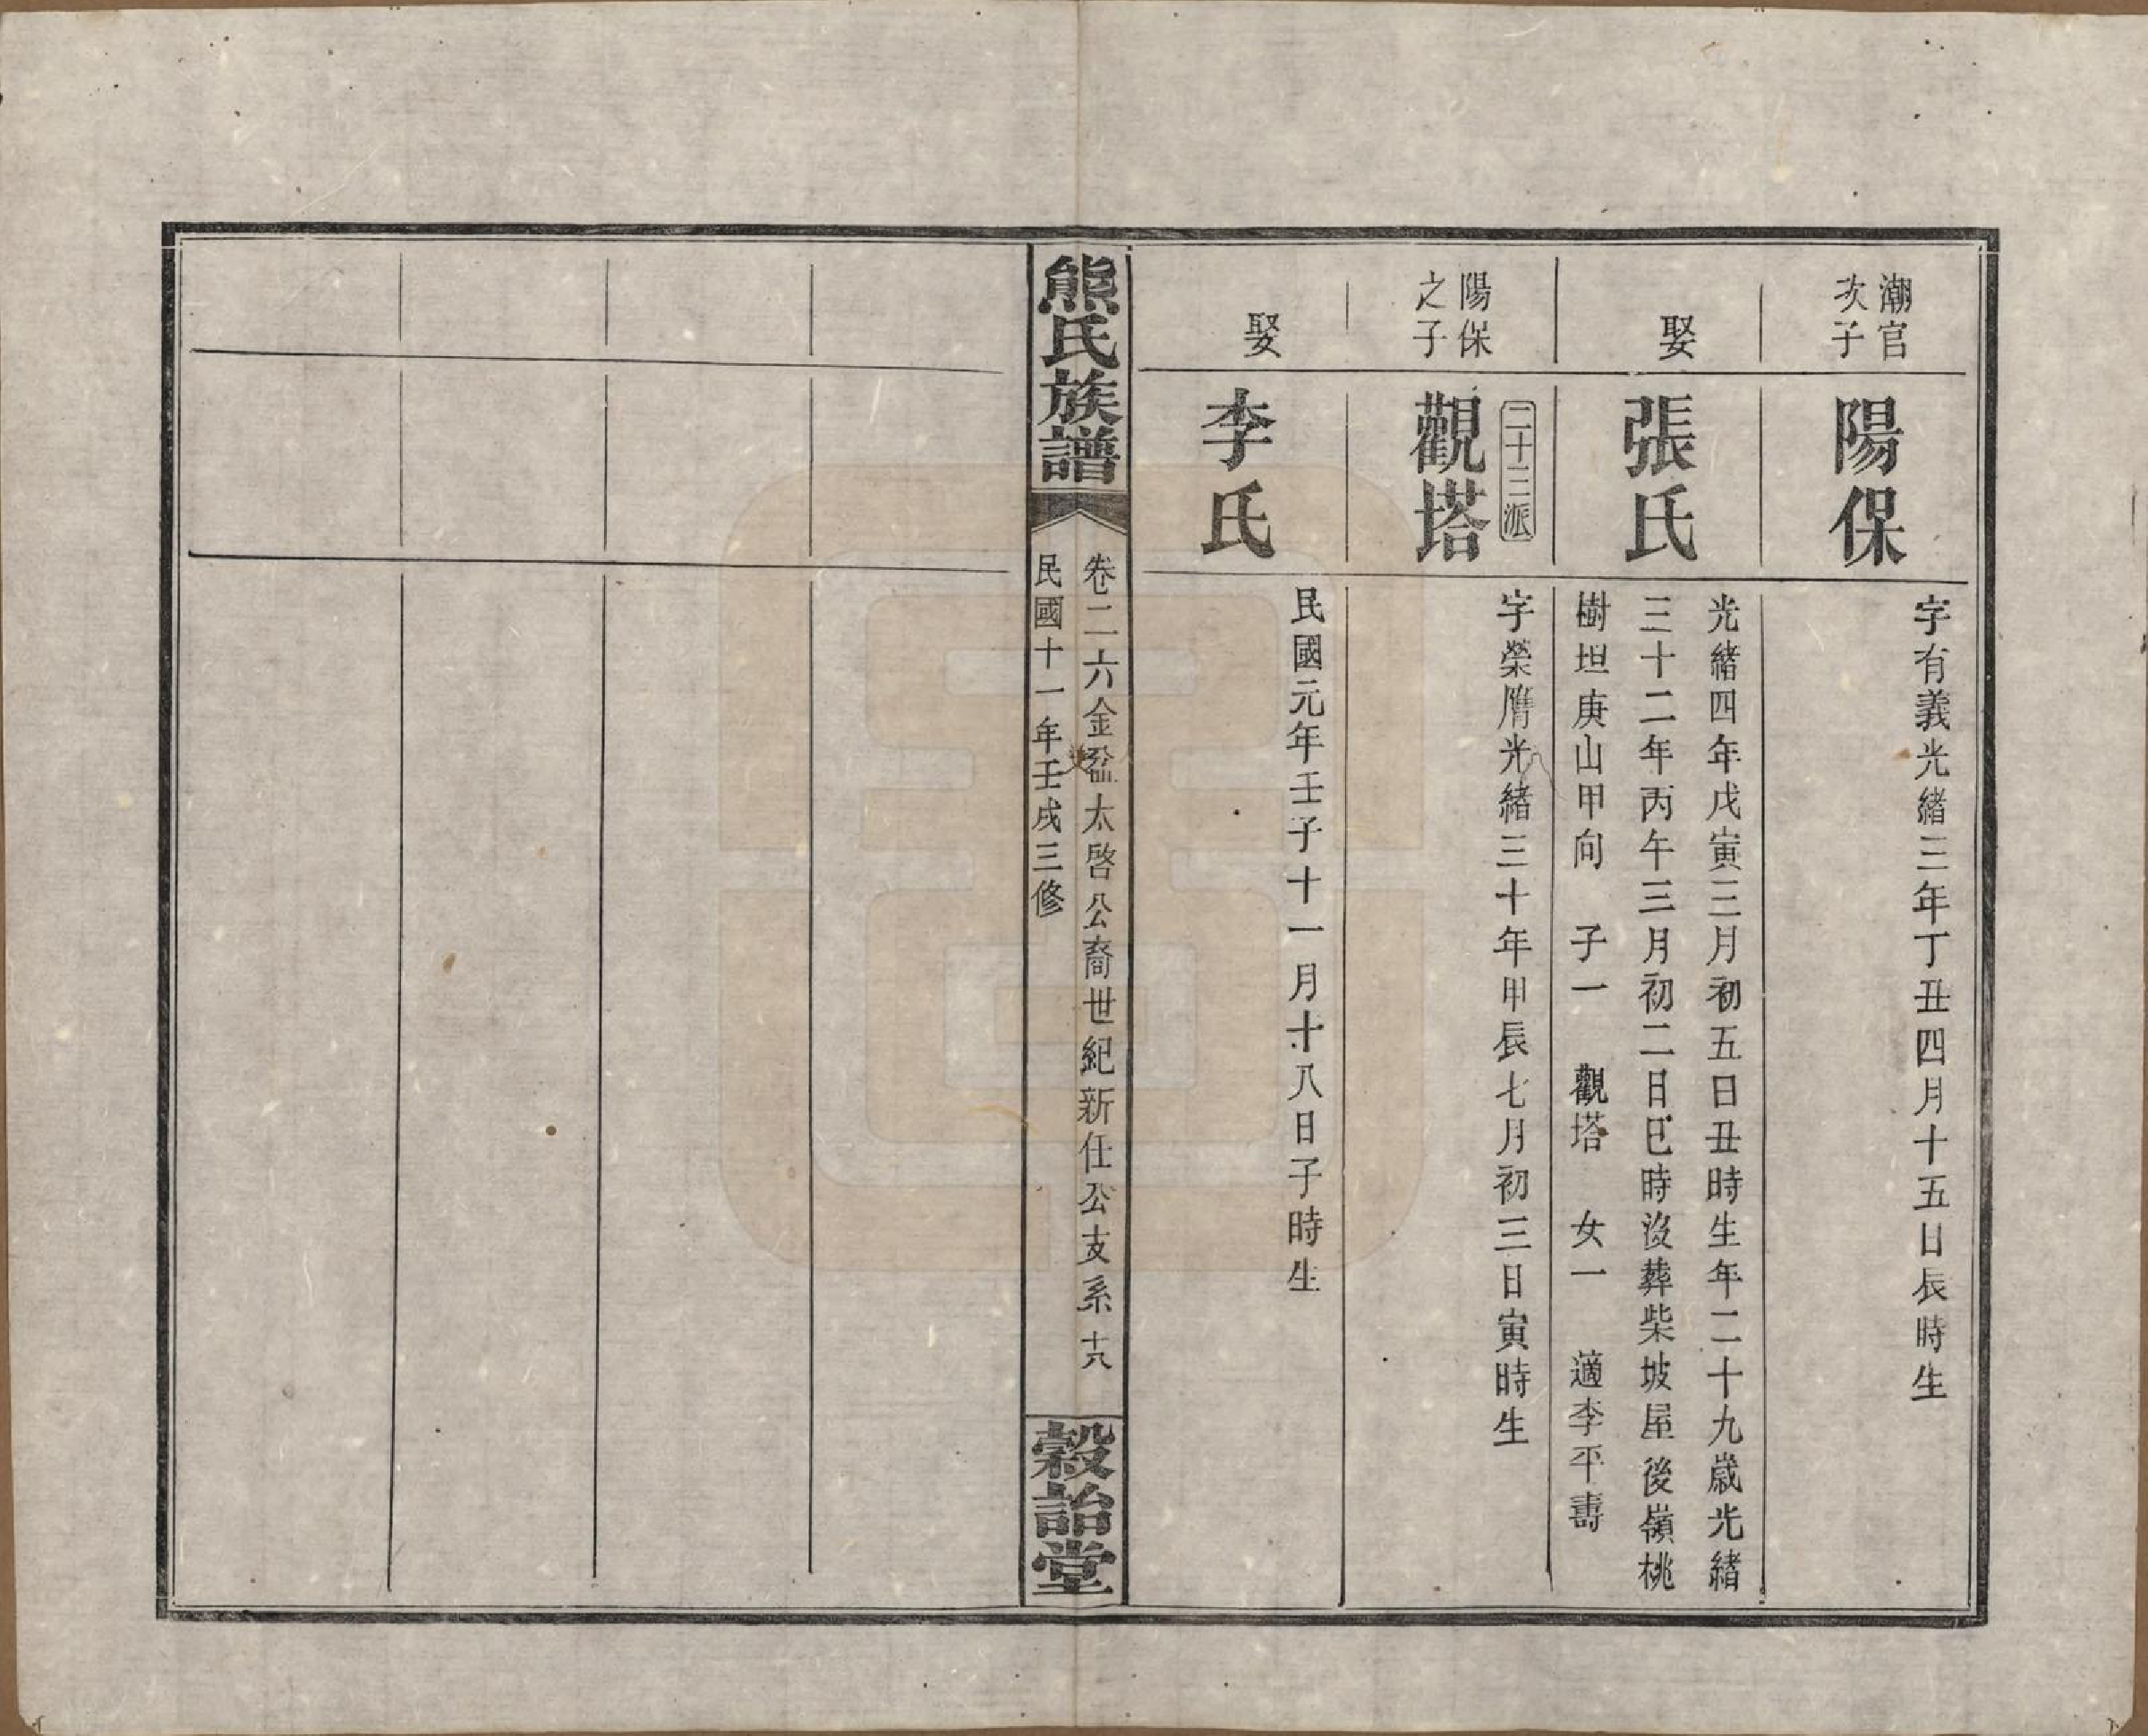 潮官
次子
陽保
字有義光緒三年丁丑四月十五日辰時生
娶
張氏
光緒四年戊寅三月初五日丑時生年二十九歲光緒
三十二年丙午三月初二日巳時沒葬柴坡屋後嶺桃
樹坦庚山甲向 子一 觀塔 女一 適李平壽
二十三派
陽保
之子
觀塔
字榮膺光緒三十年甲辰七月初三日寅時生
娶
李氏
民國元年壬子十一月十八日子時生
熊氏族譜
卷二六金盆太啓公裔世紀新仕公支系 十八
民國十一年壬戌三修
穀詒堂